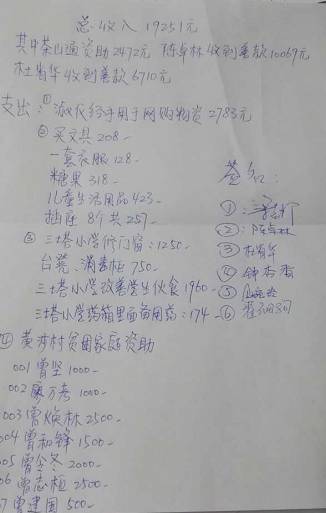 总收入 19251元
其中茶山通资助2472元 陈卓林收到善款10069元
杜肖华收到善款6710元
支出:① 淑衣经手用于网购物资2783元
② 买文具208-
一套衣服128-
糖果318-
儿童生活用品423-
插座8个共257-
③ 三塔小学修门窗:1250-
台凳、消毒柜750-
三塔小学改善学生伙食1960-
三塔小学药箱里面备用药:174-
签名:
①:
②:陈卓林
③ 杜肖华
④ 钟杏香
⑤
⑥
④ 黄沙村贫困家庭资助
001曾坚1000-
002廖万寿1000-
003曾焕林2500-
004曾和锋1500-
05曾全冬2000-
06曾志桓2500-
7曾建国500-